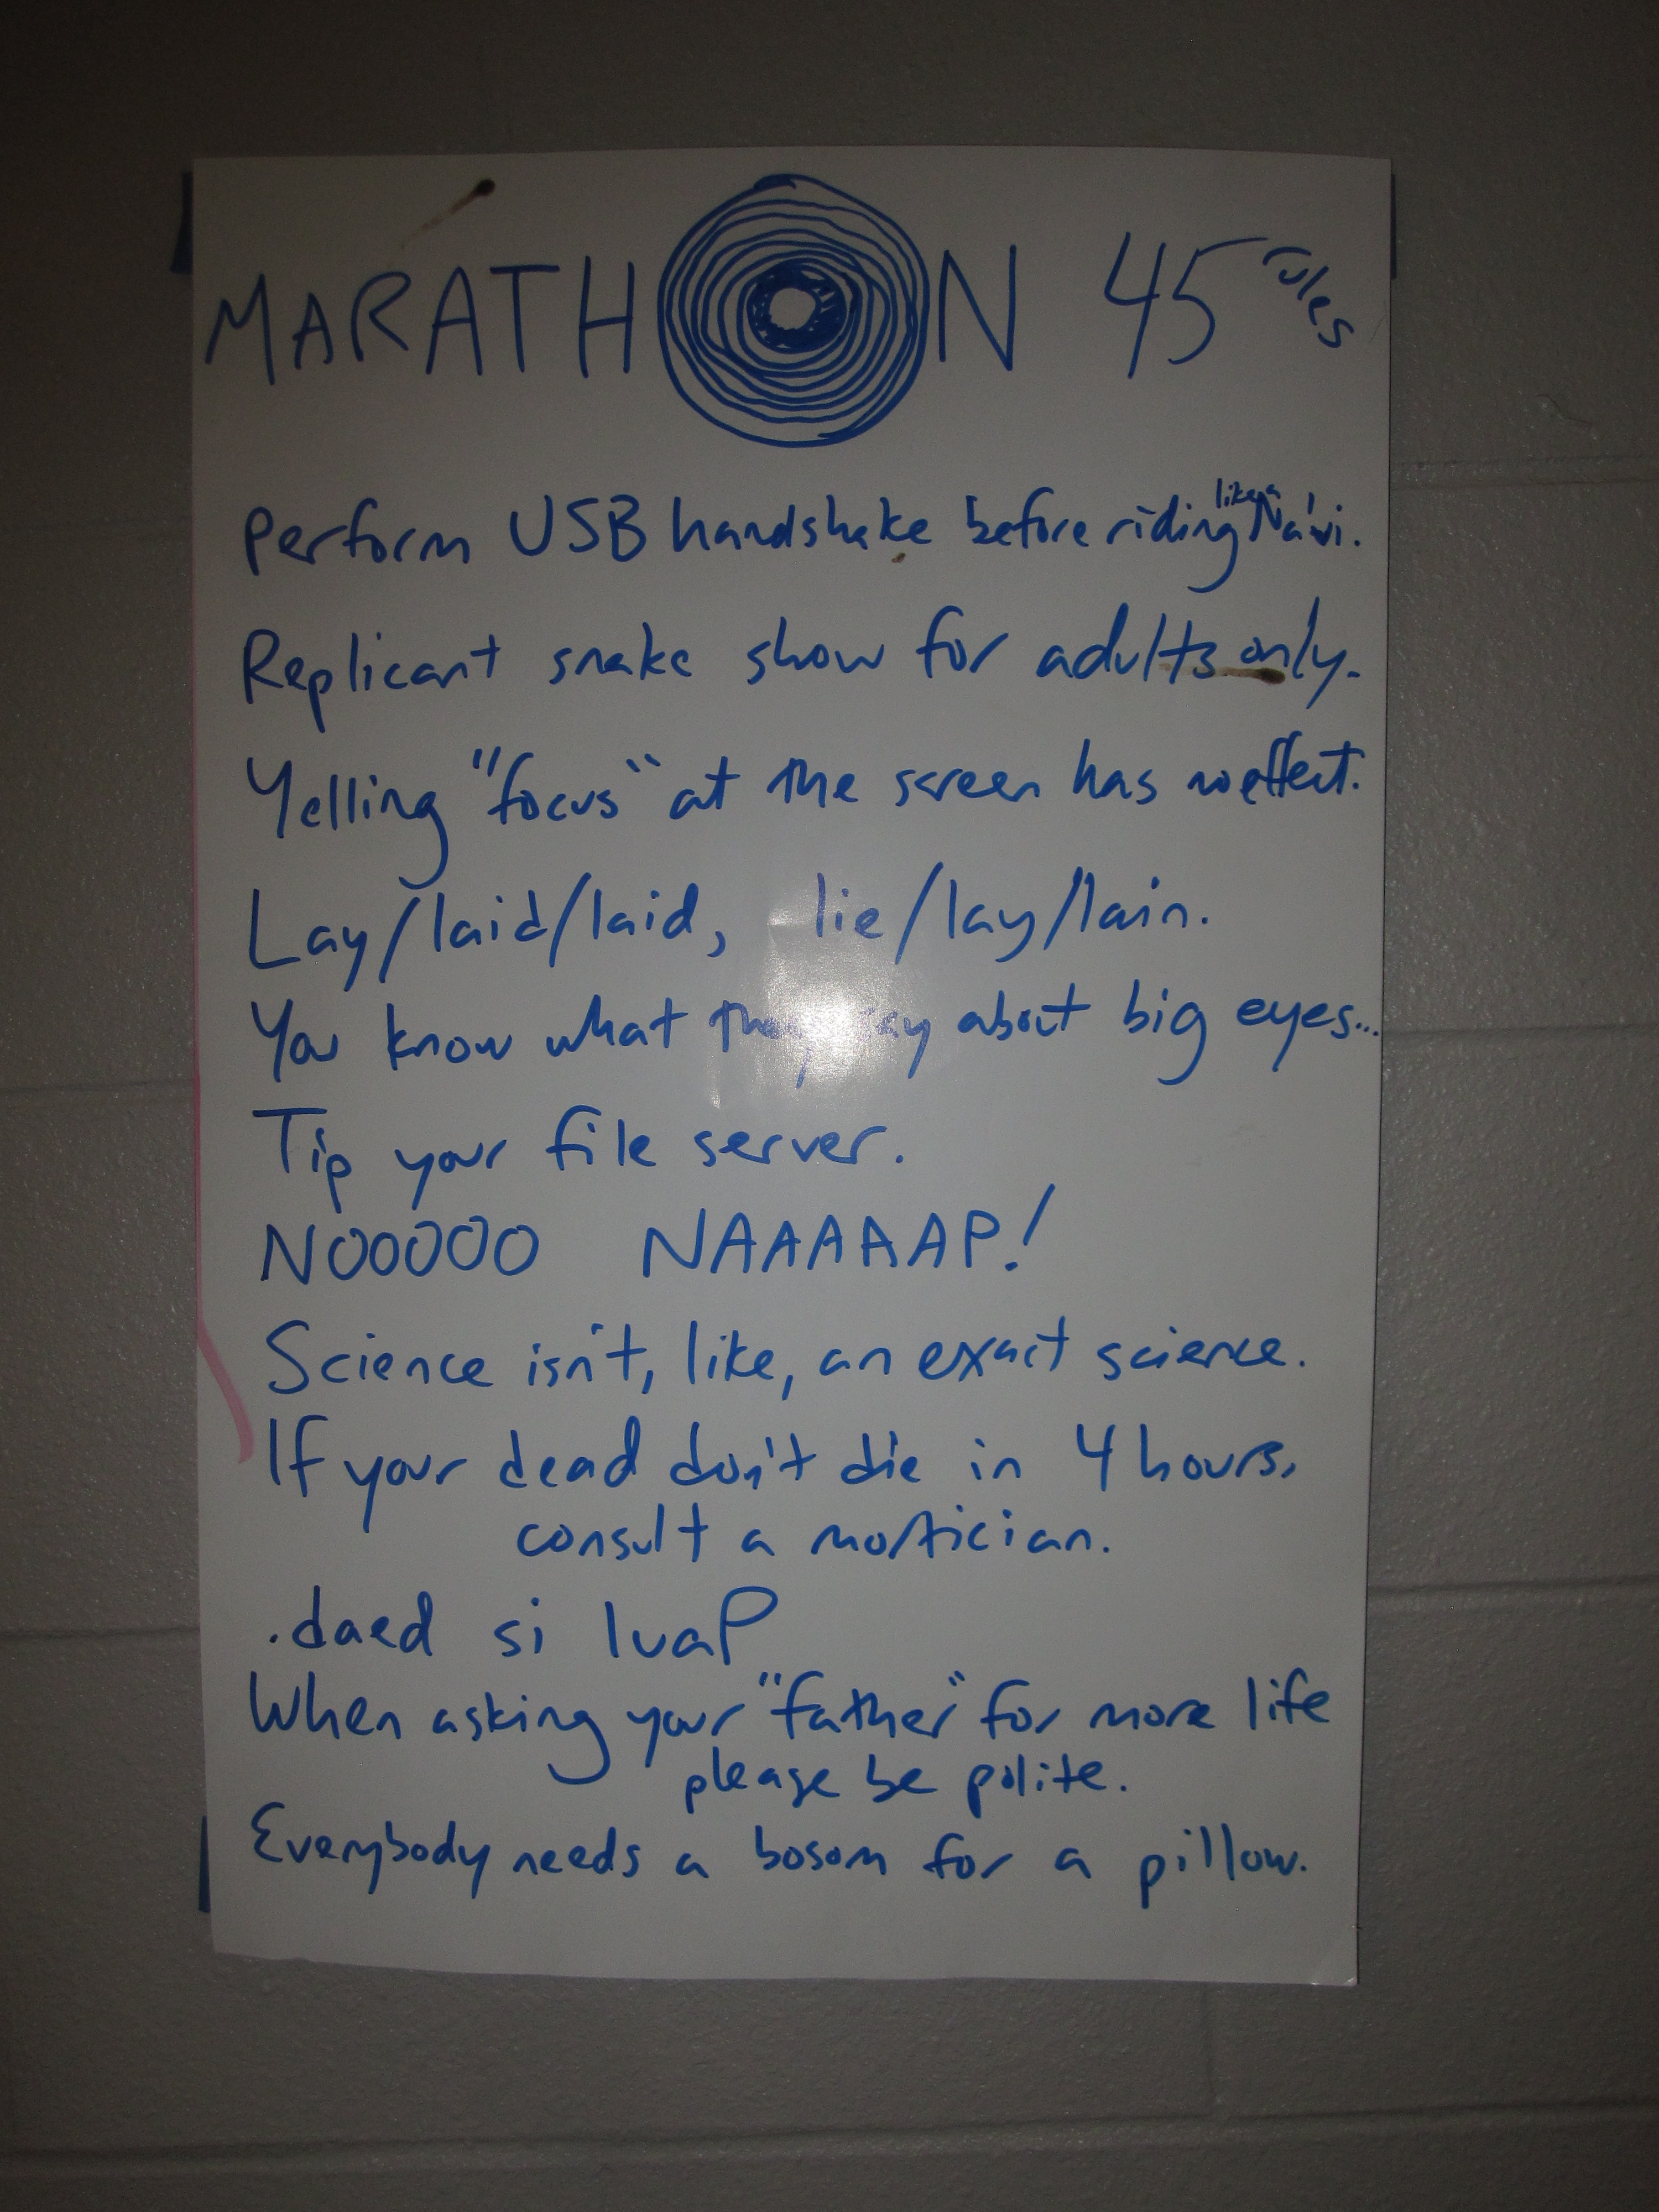 MARATHON 45 rules
Perform USB handshake before riding like a Na'vi.
Replicant snake show for adults only.
Yelling "focus" at the screen has no effect.
Lay/laid/laid, lie/lay/lain.
You know what they say about big eyes...
Tip your file server.
NOOOOO NAAAAAAP!
Science isn't, like, an exact science.
If your dead don't die in 4 hours,
consult a mortician.
.daed si luaP
When asking your "father" for more life
please be polite.
Everybody needs a bosom for a pillow.